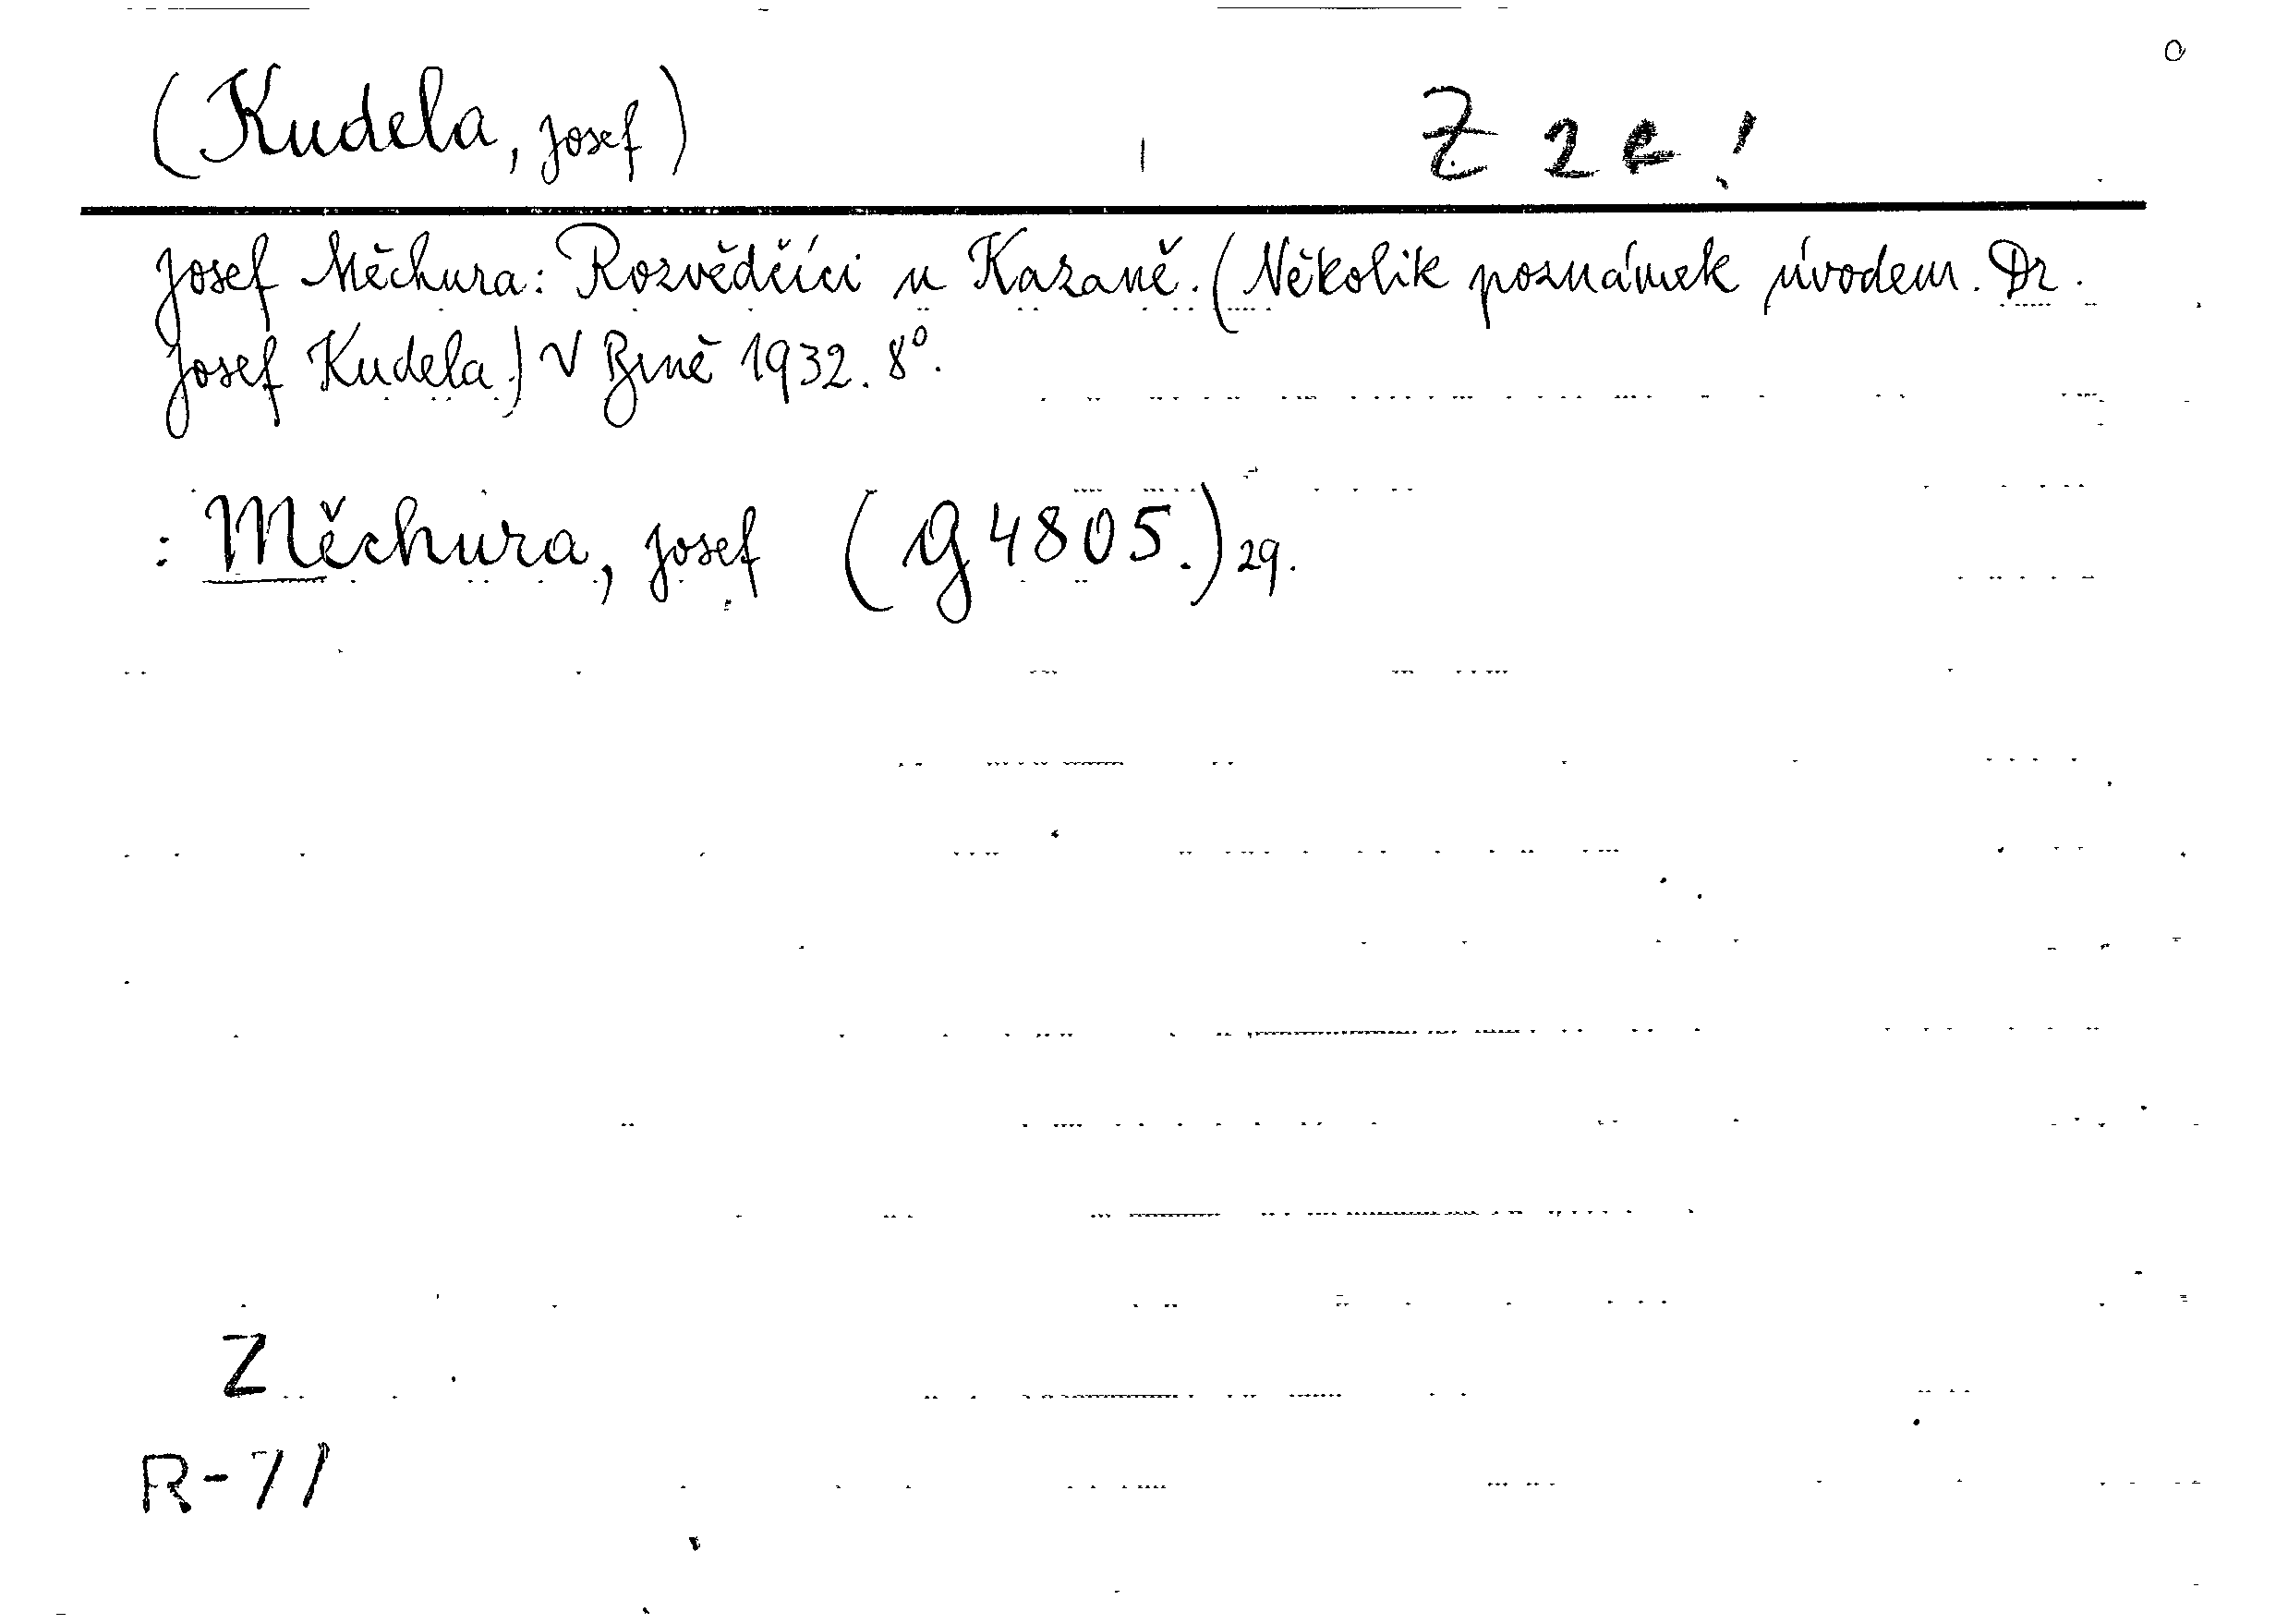 (Kudela, Josef) Z 2 e !
Josef Měchura: Rozvědčíci u Kazaně. (Několik poznámek úvodem. Dr.
Josef Kudela.) V Brně 1932. 8°.
: Měchura, Josef (g 4805.) 29.
Z
R-71